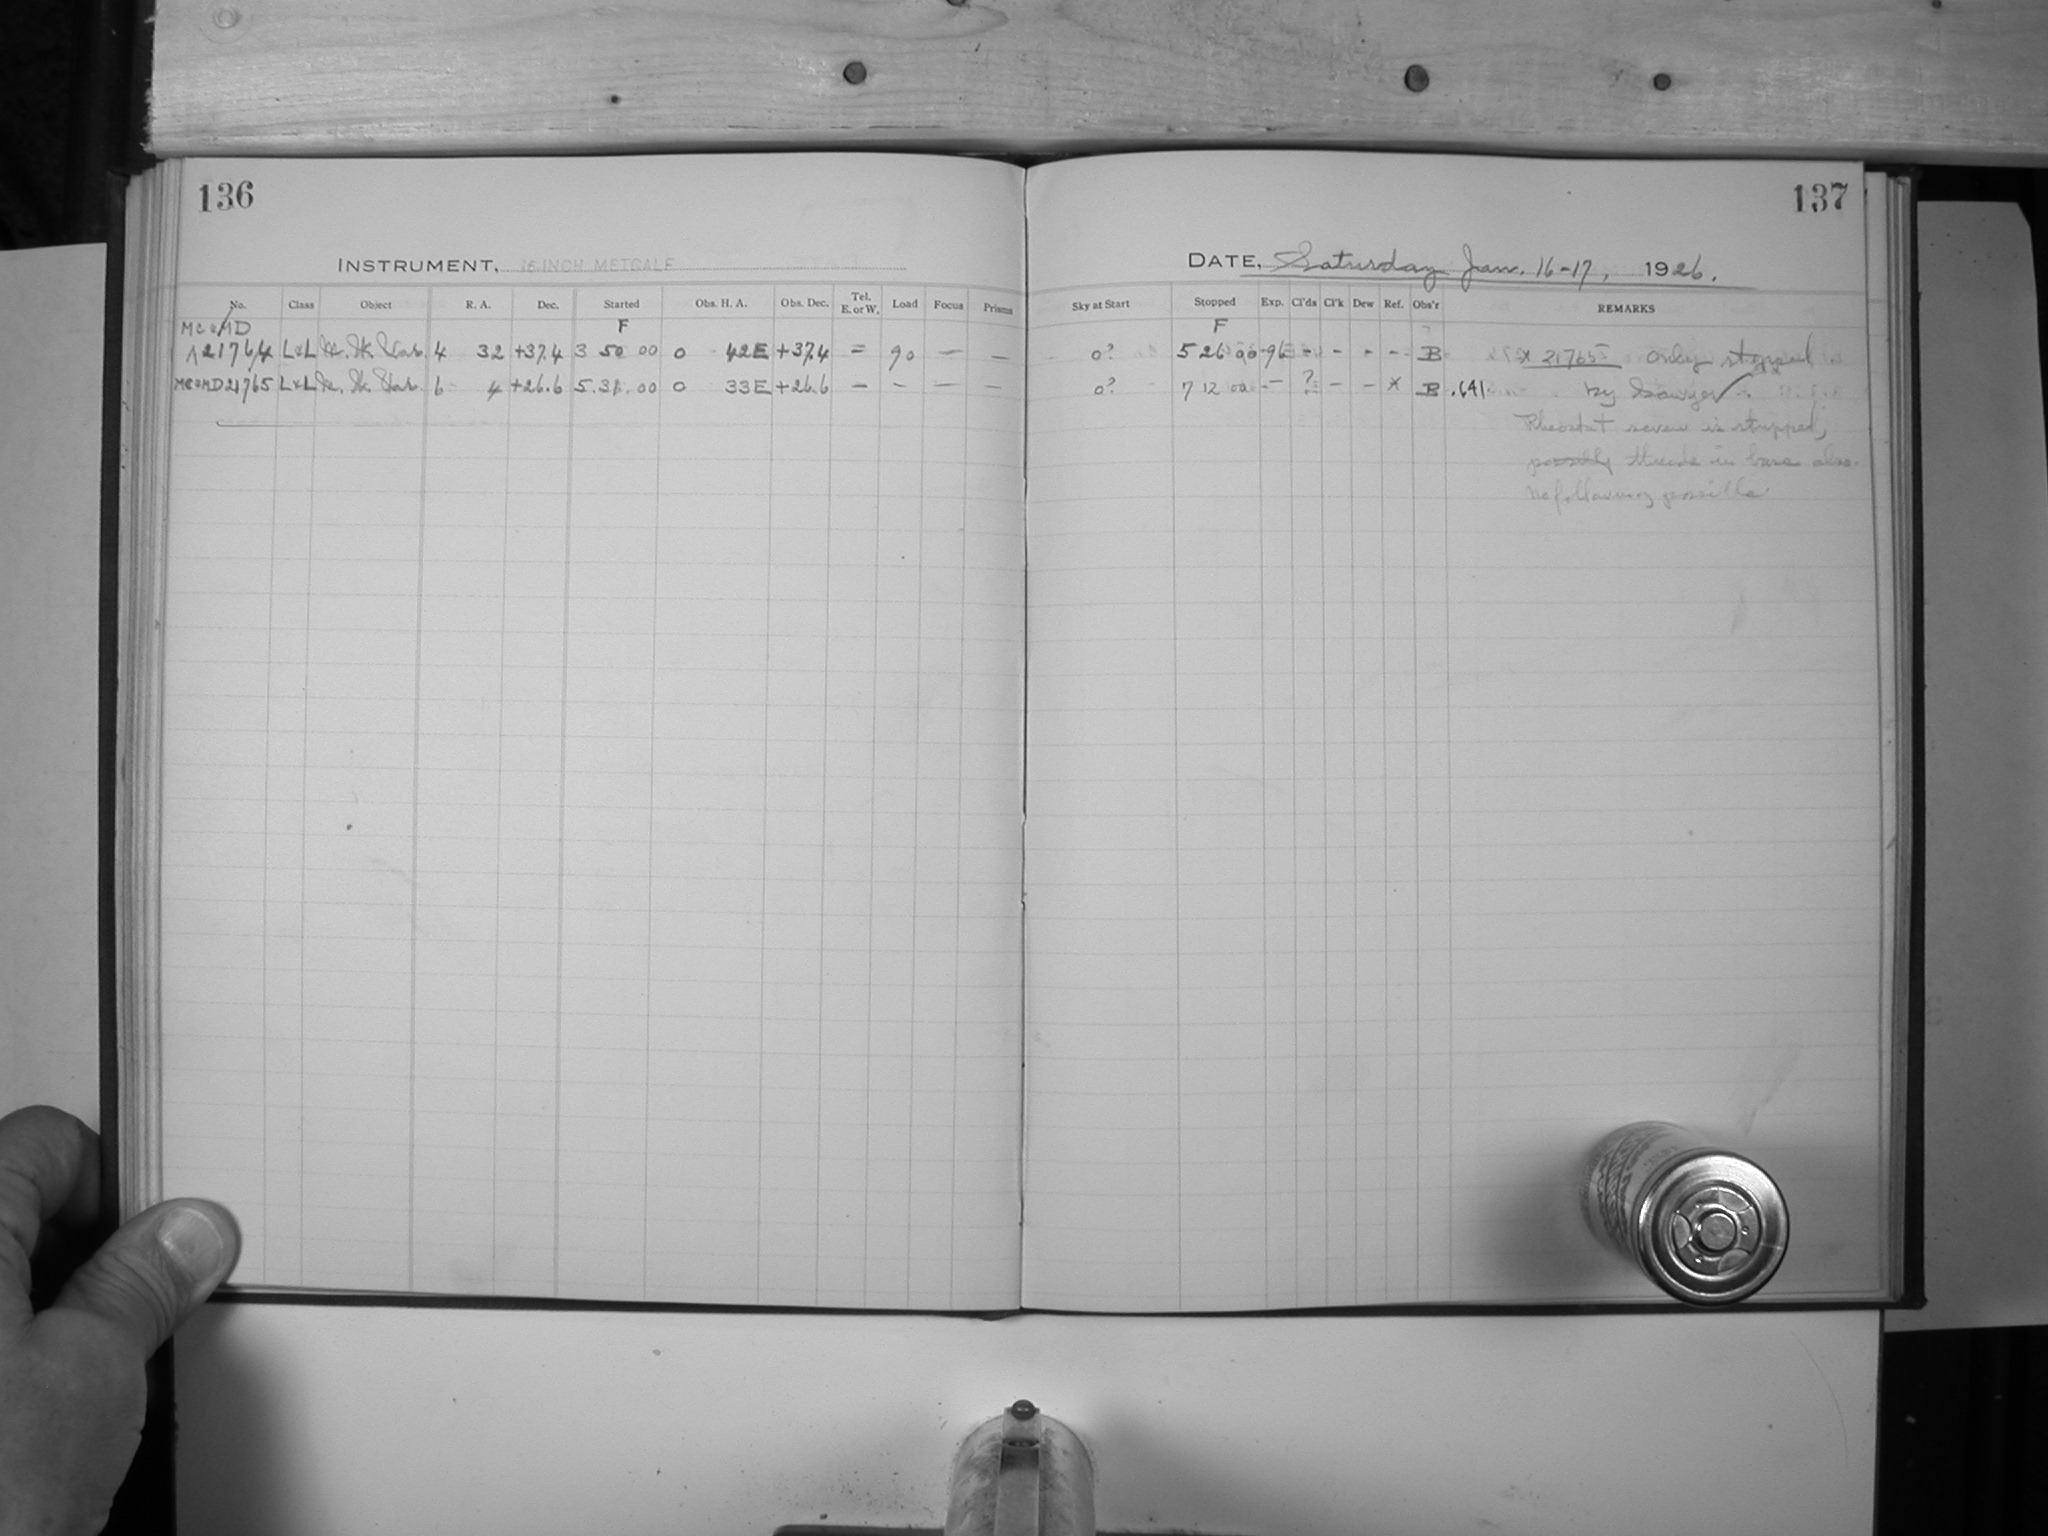 136
INSTRUMENT, 16 INCH METCALF
No. Class Object R. A. Dec. Started Obs. H. A. Obs. Dec. Tel. E. or W. Load Focus Prisms
MC & MD F
21764 L&L 4 32 +37.4 3 50 00 0 42E +37.4 = 90 — —
MC&MD 21765 L&L 6 4 +26.6 5.31.00 0 33E +26.6 — – — —
137
DATE, Saturday Jan. 16-17, 1926.
Sky at Start Stopped Exp. Cl'ds Cl'k Dew Ref. Obs'r REMARKS
F
0? 5 26 00 96 - - - - B x 21765 Only stopped
0? 7 12 00 - ? - - x B .(41 by Sawyer ✓
Rheostat screw is stripped,
possibly threads in base also.
No following possible